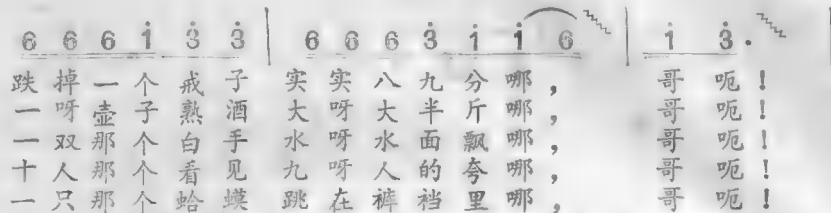 6 6 6 1̇ 3̇ 3̇ | 6 6 6 3̇ 1̇ 1̇ 6 | 1̇ 3̇. |
跌掉一个戒子 实实八九分哪， 哥 呃！
一呀壶子熟酒 大呀大半斤哪， 哥 呃！
一双那个白手 水呀水面飘哪， 哥 呃！
十人那个看见 九呀人的夸哪， 哥 呃！
一只那个蛤蟆 跳在裤裆里哪， 哥 呃！